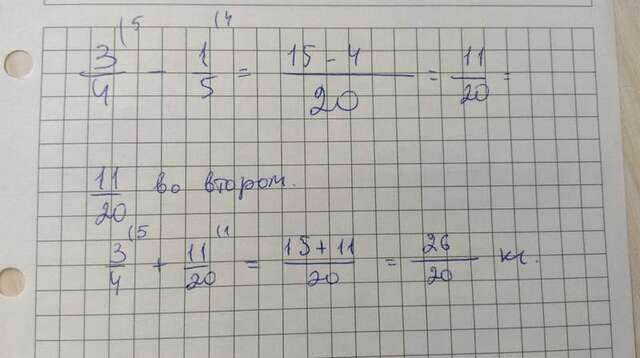 3/4 (5 - 1/5 (4 = 15-4/20 = 11/20 =
11/20 во втором.
3/4 (5 + 11/20 (1 = 15+11/20 = 26/20 кг.